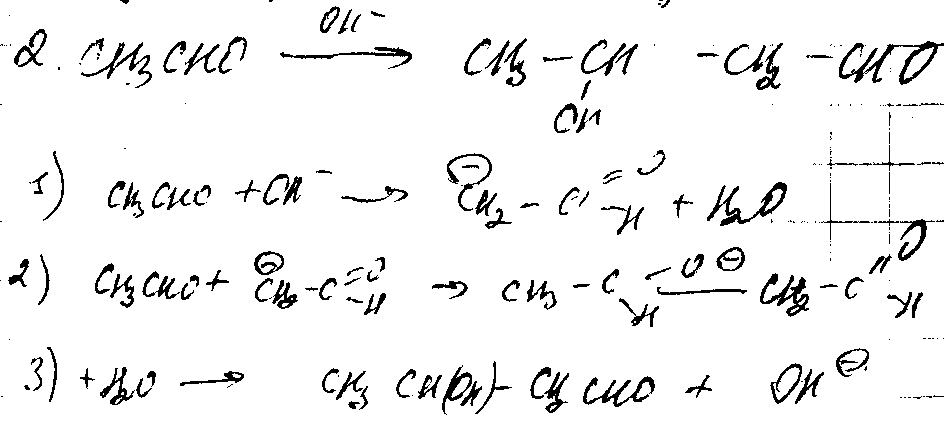 OH⁻
2. CH₃CHO ⟶ CH₃ – CH – CH₂ – CHO
OH
1) CH₃CHO + OH⁻ → ⊖CH₂ – C =O –H + H₂O
2) CH₃CHO + ⊖CH₂ – C =O –H → CH₃ – C –O⊖ –H — CH₂ – C =O –H
3) + H₂O → CH₃ CH(OH) – CH₂ CHO + OH⊖